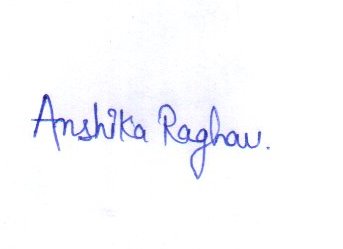 Anshika Raghav.